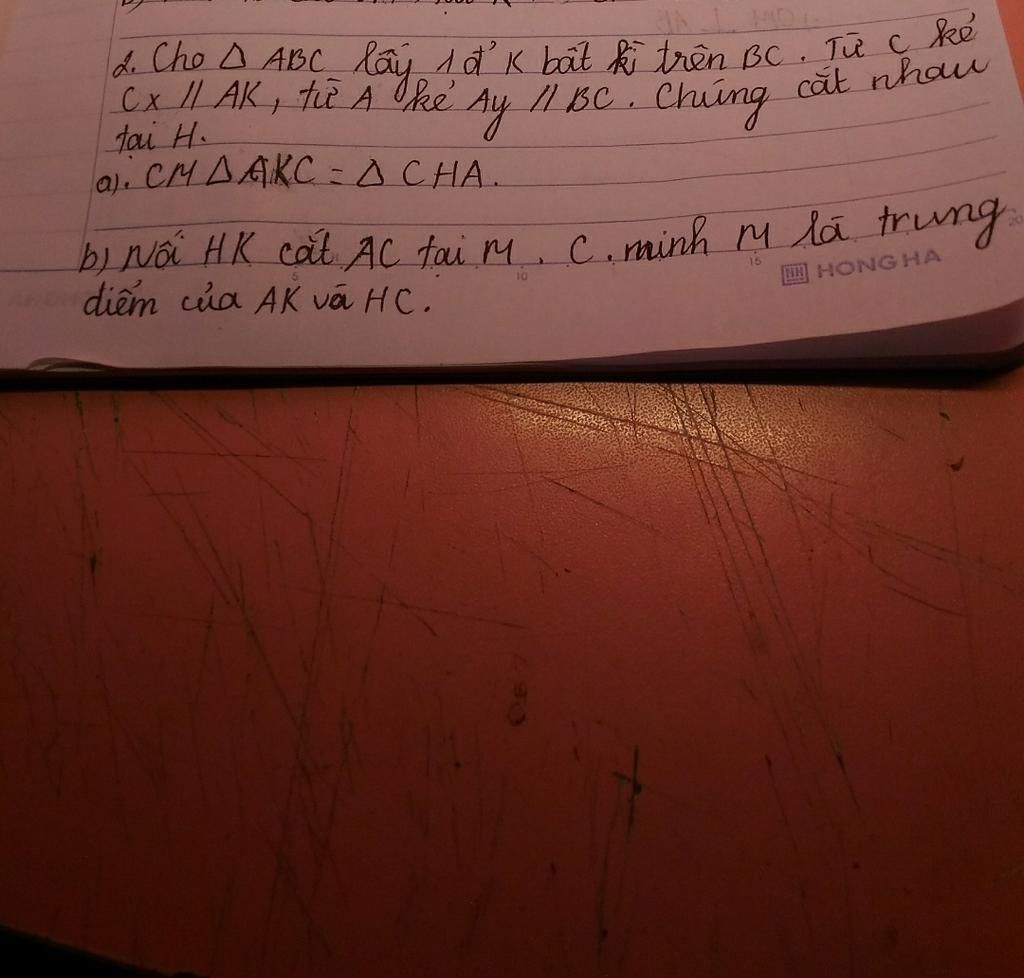 2. Cho Δ ABC lấy 1 đ' K bất kì trên BC. Từ C kẻ
Cx // AK, từ A kẻ Ay // BC. Chúng cắt nhau
tại H.
a). CM Δ AKC = Δ CHA.
b) Nối HK cắt AC tại M. C. minh M là trung
điểm của AK và HC.
HONG HA
5 10 15 20